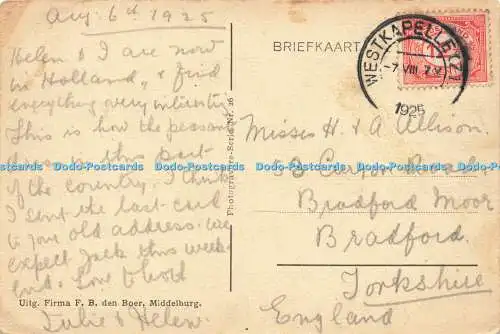 Aug 6th 1925
Helen & I are now
in Holland, & find
everything very interesting
This is how the peasants
dress in this part
of the country. I think
I sent the last card
to your old address. We
expect Jack this week-
end. Love to both
Julie & Helen.
Uitg. Firma F. B. den Boer, Middelburg.
Photogravure-Serie Nr. 26
BRIEFKAART
WESTKAPELLE (Z)
-7 VIII 7 V
1925
Misses H. & A. Allison.
Road
Bradford Moor
Bradford.
Yorkshire
England
Dodo-Postcards Dodo-Postcards Dodo-Postcards Dodo-Postcards Dodo-Postcards Dodo-Postcards